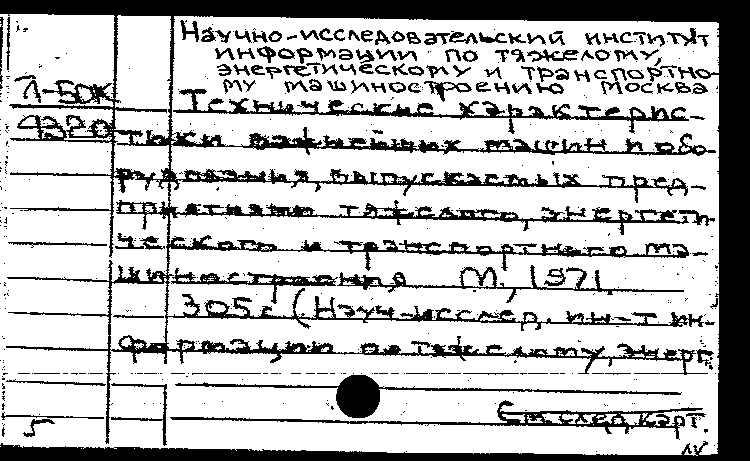 Научно-исследовательский институт
информации по тяжелому,
энергетическому и транспортно-
му машиностроению Москва
Л-БОЖ
Технические характерис-
4320
тики важнейших машин и обо-
рудования, выпускаемых пред-
приятиями тяжелого, энергети-
ческого и транспортного ма-
шиностроения М., 1971.
305 с (Науч-исслед. ин-т ин-
формации по тяжелому, энерг.
См. след. карт.
5